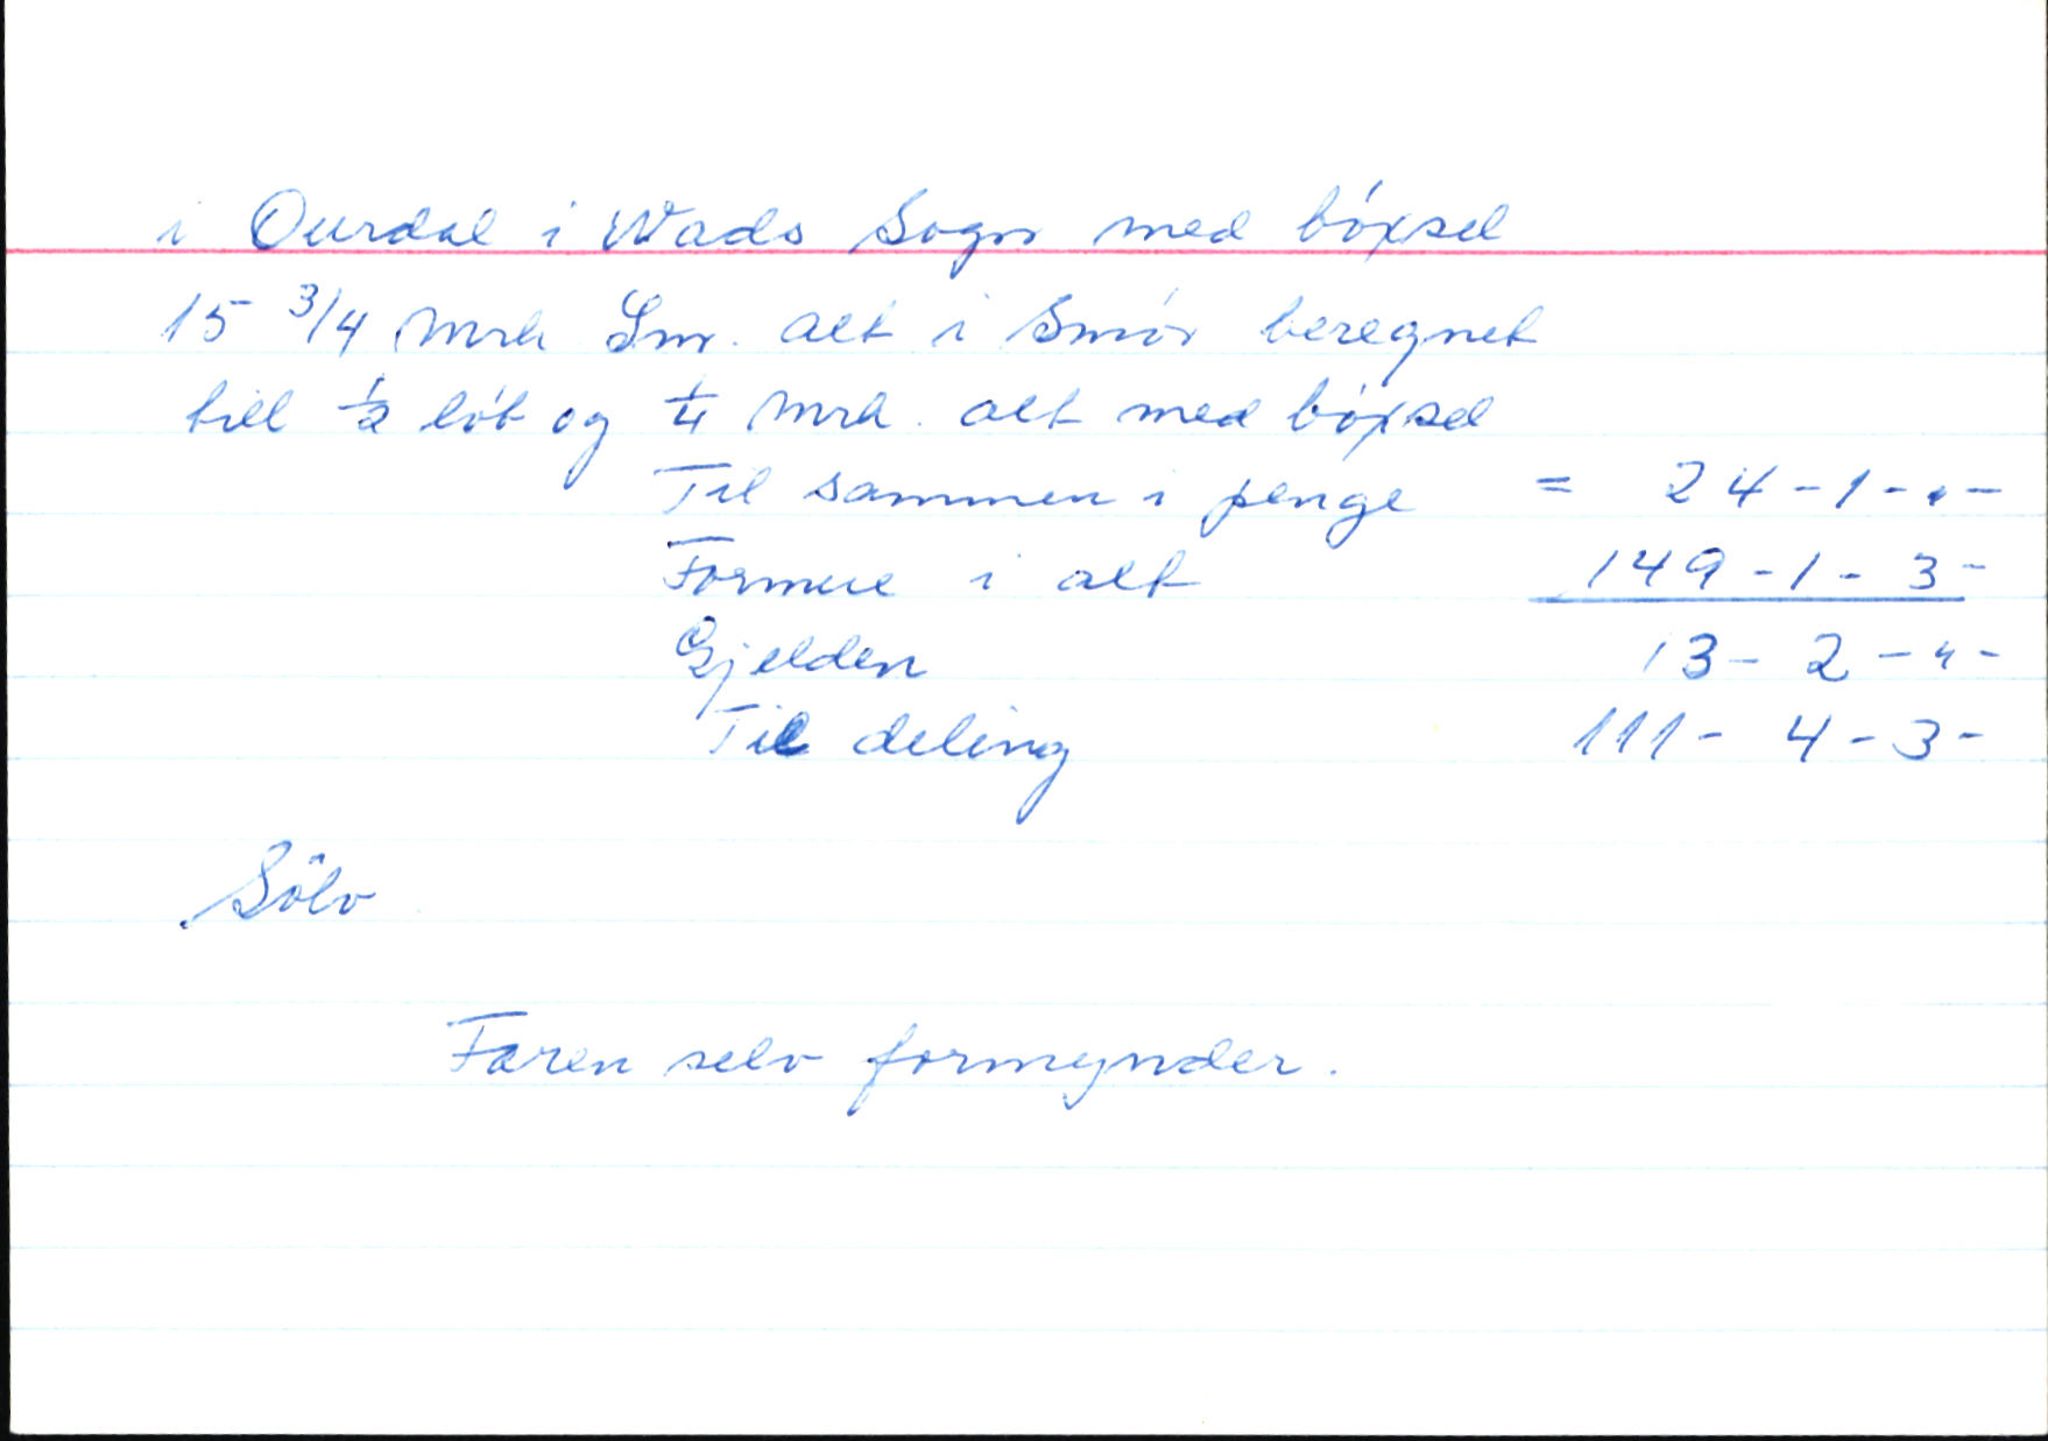 i Ourdal i Wads Sogn med böxsel
15 3/4 mrk Smr. alt i Smör beregnet
till 1/2 löb og 1/4 mrk. alt med böxsel
Til sammen i penge = 24-1-"-
Formue i alt 149-1-3-
Gjelden 13-2-"-
Til deling 111-4-3-
Sölv
Faren selv formynder.